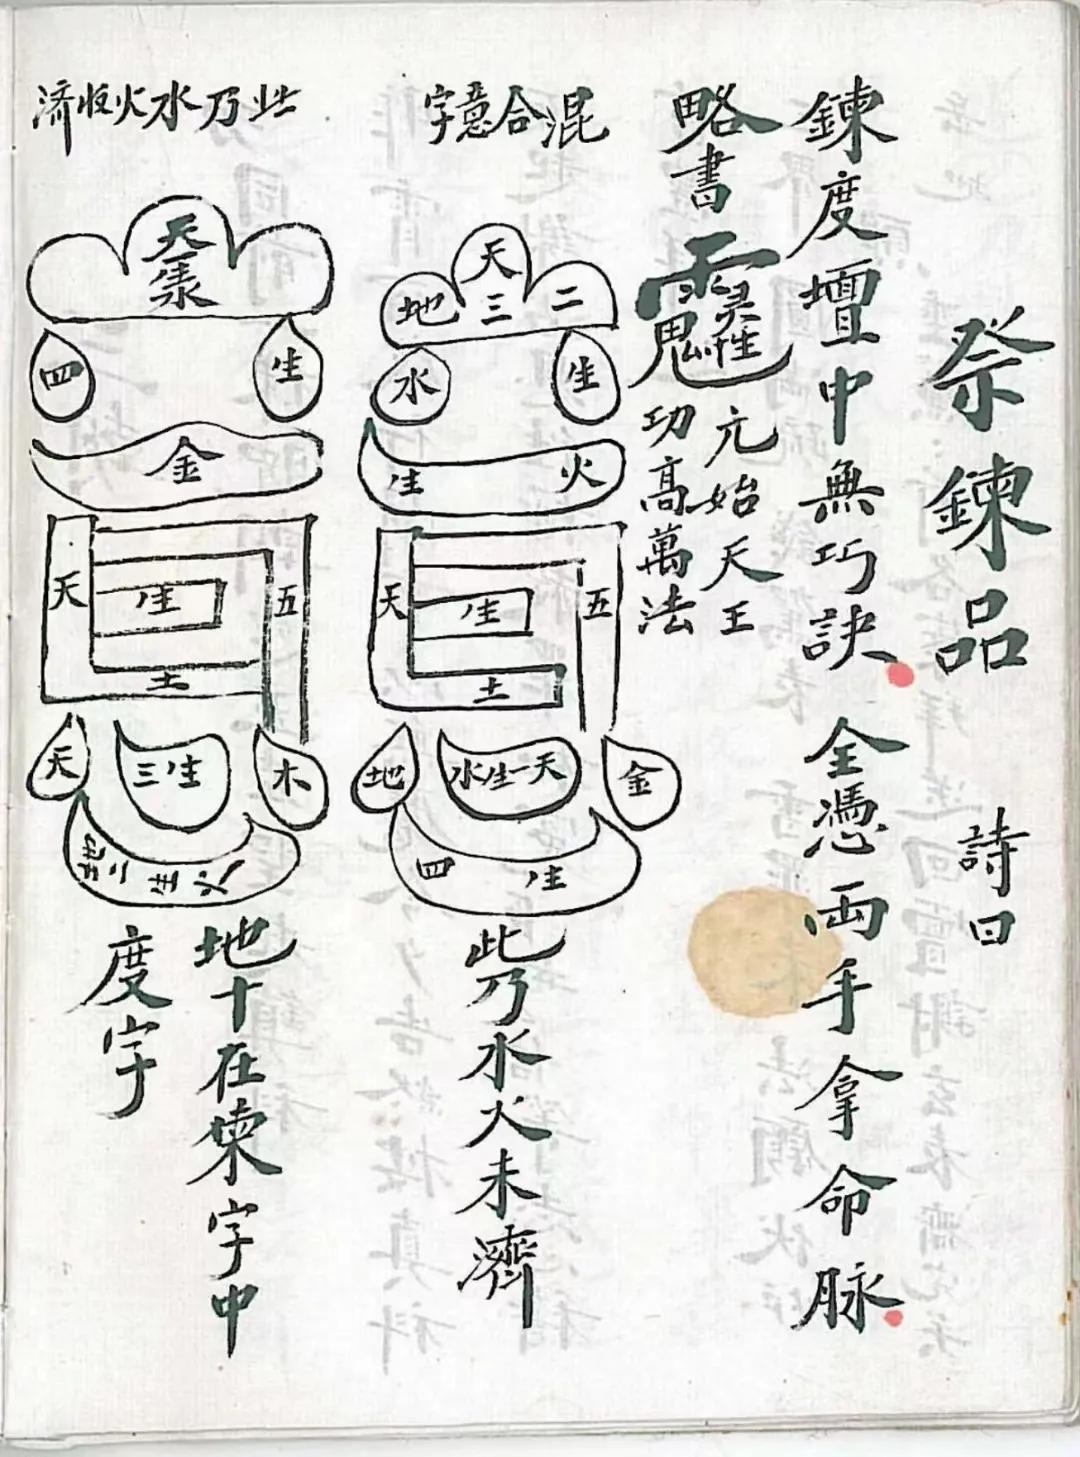 祭鍊品　詩曰
鍊度壇中無巧訣　全憑両手拿命脉
略書
元始天王
功高萬法
混合意字
天三
地
二
水
生
生
火
天
五
生
土
地
水生一天
金
四
生
此乃水火未濟
此乃水火旣濟
天
四
生
金
天
五
生
土
天
三生
木
地十在煉字中
度字